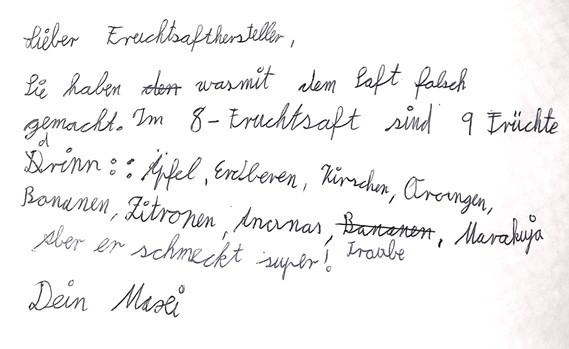 Lieber Fruchtsafthersteller,
Sie haben den was mit dem Saft falsch
gemacht. Im 8-Fruchtsaft sind 9 Früchte
drinn: Äpfel, Erdberen, Kirschen, Orangen,
Bananen, Zitronen, Ananas, Bananen, Marakuja
Traube
Aber er schmeckt super!
Dein Maxi